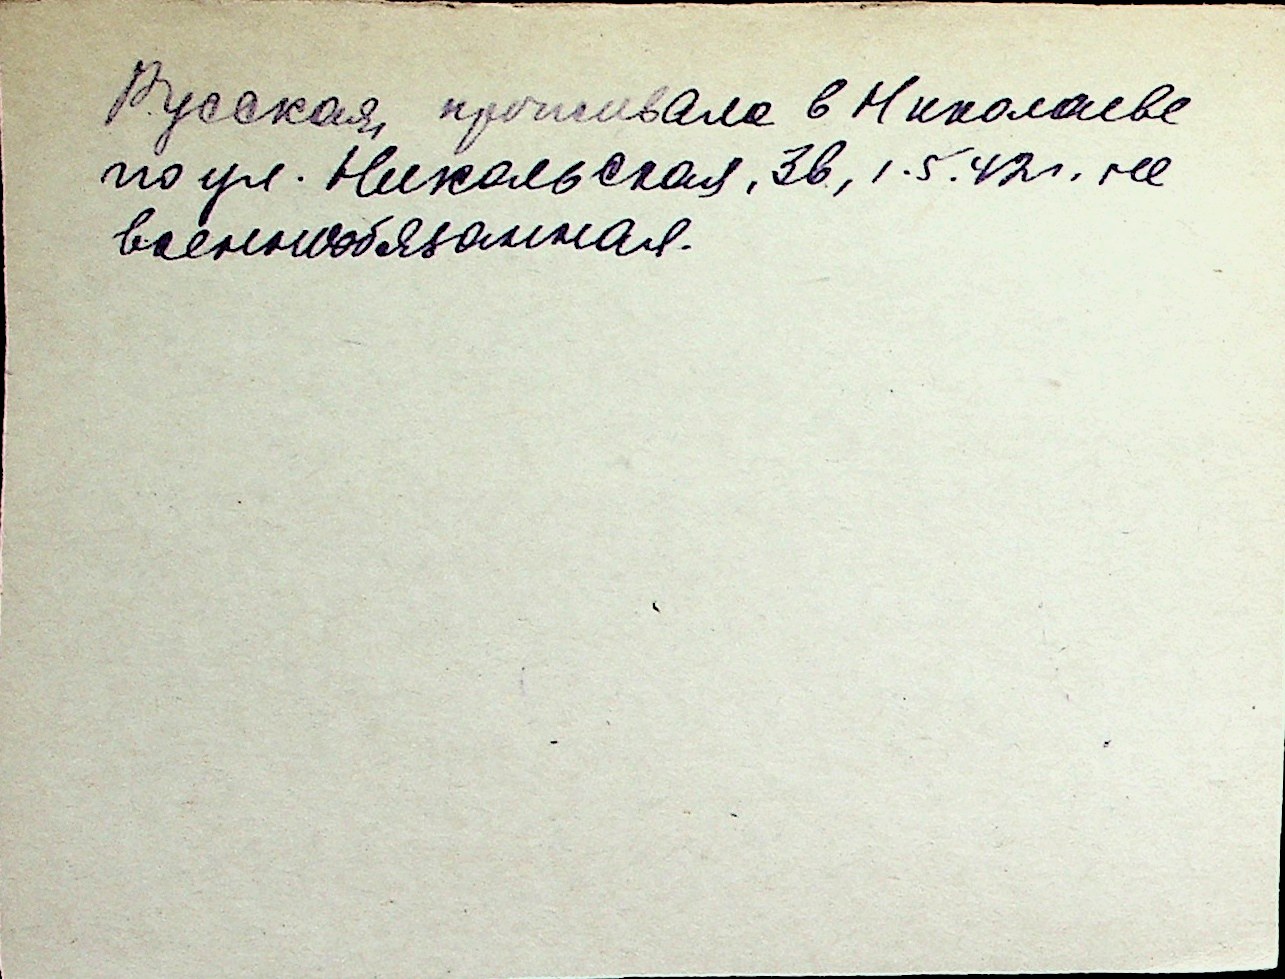 Русская, проживала в Николаеве
по ул. Никольская, 3в, 1.5.42г. не
военнообязанная.